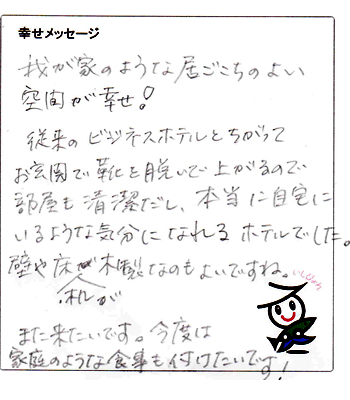 幸せメッセージ
我が家のような居ごこちのよい
空間が幸せ!
従来のビジネスホテルとちがって
お玄関で靴を脱いで上がるので
部屋も清潔だし、本当に自宅に
いるような気分になれるホテルでした。
壁や床が木製なのもよいですね。
また来たいです。今度は
家庭のような食事も付けたいです!